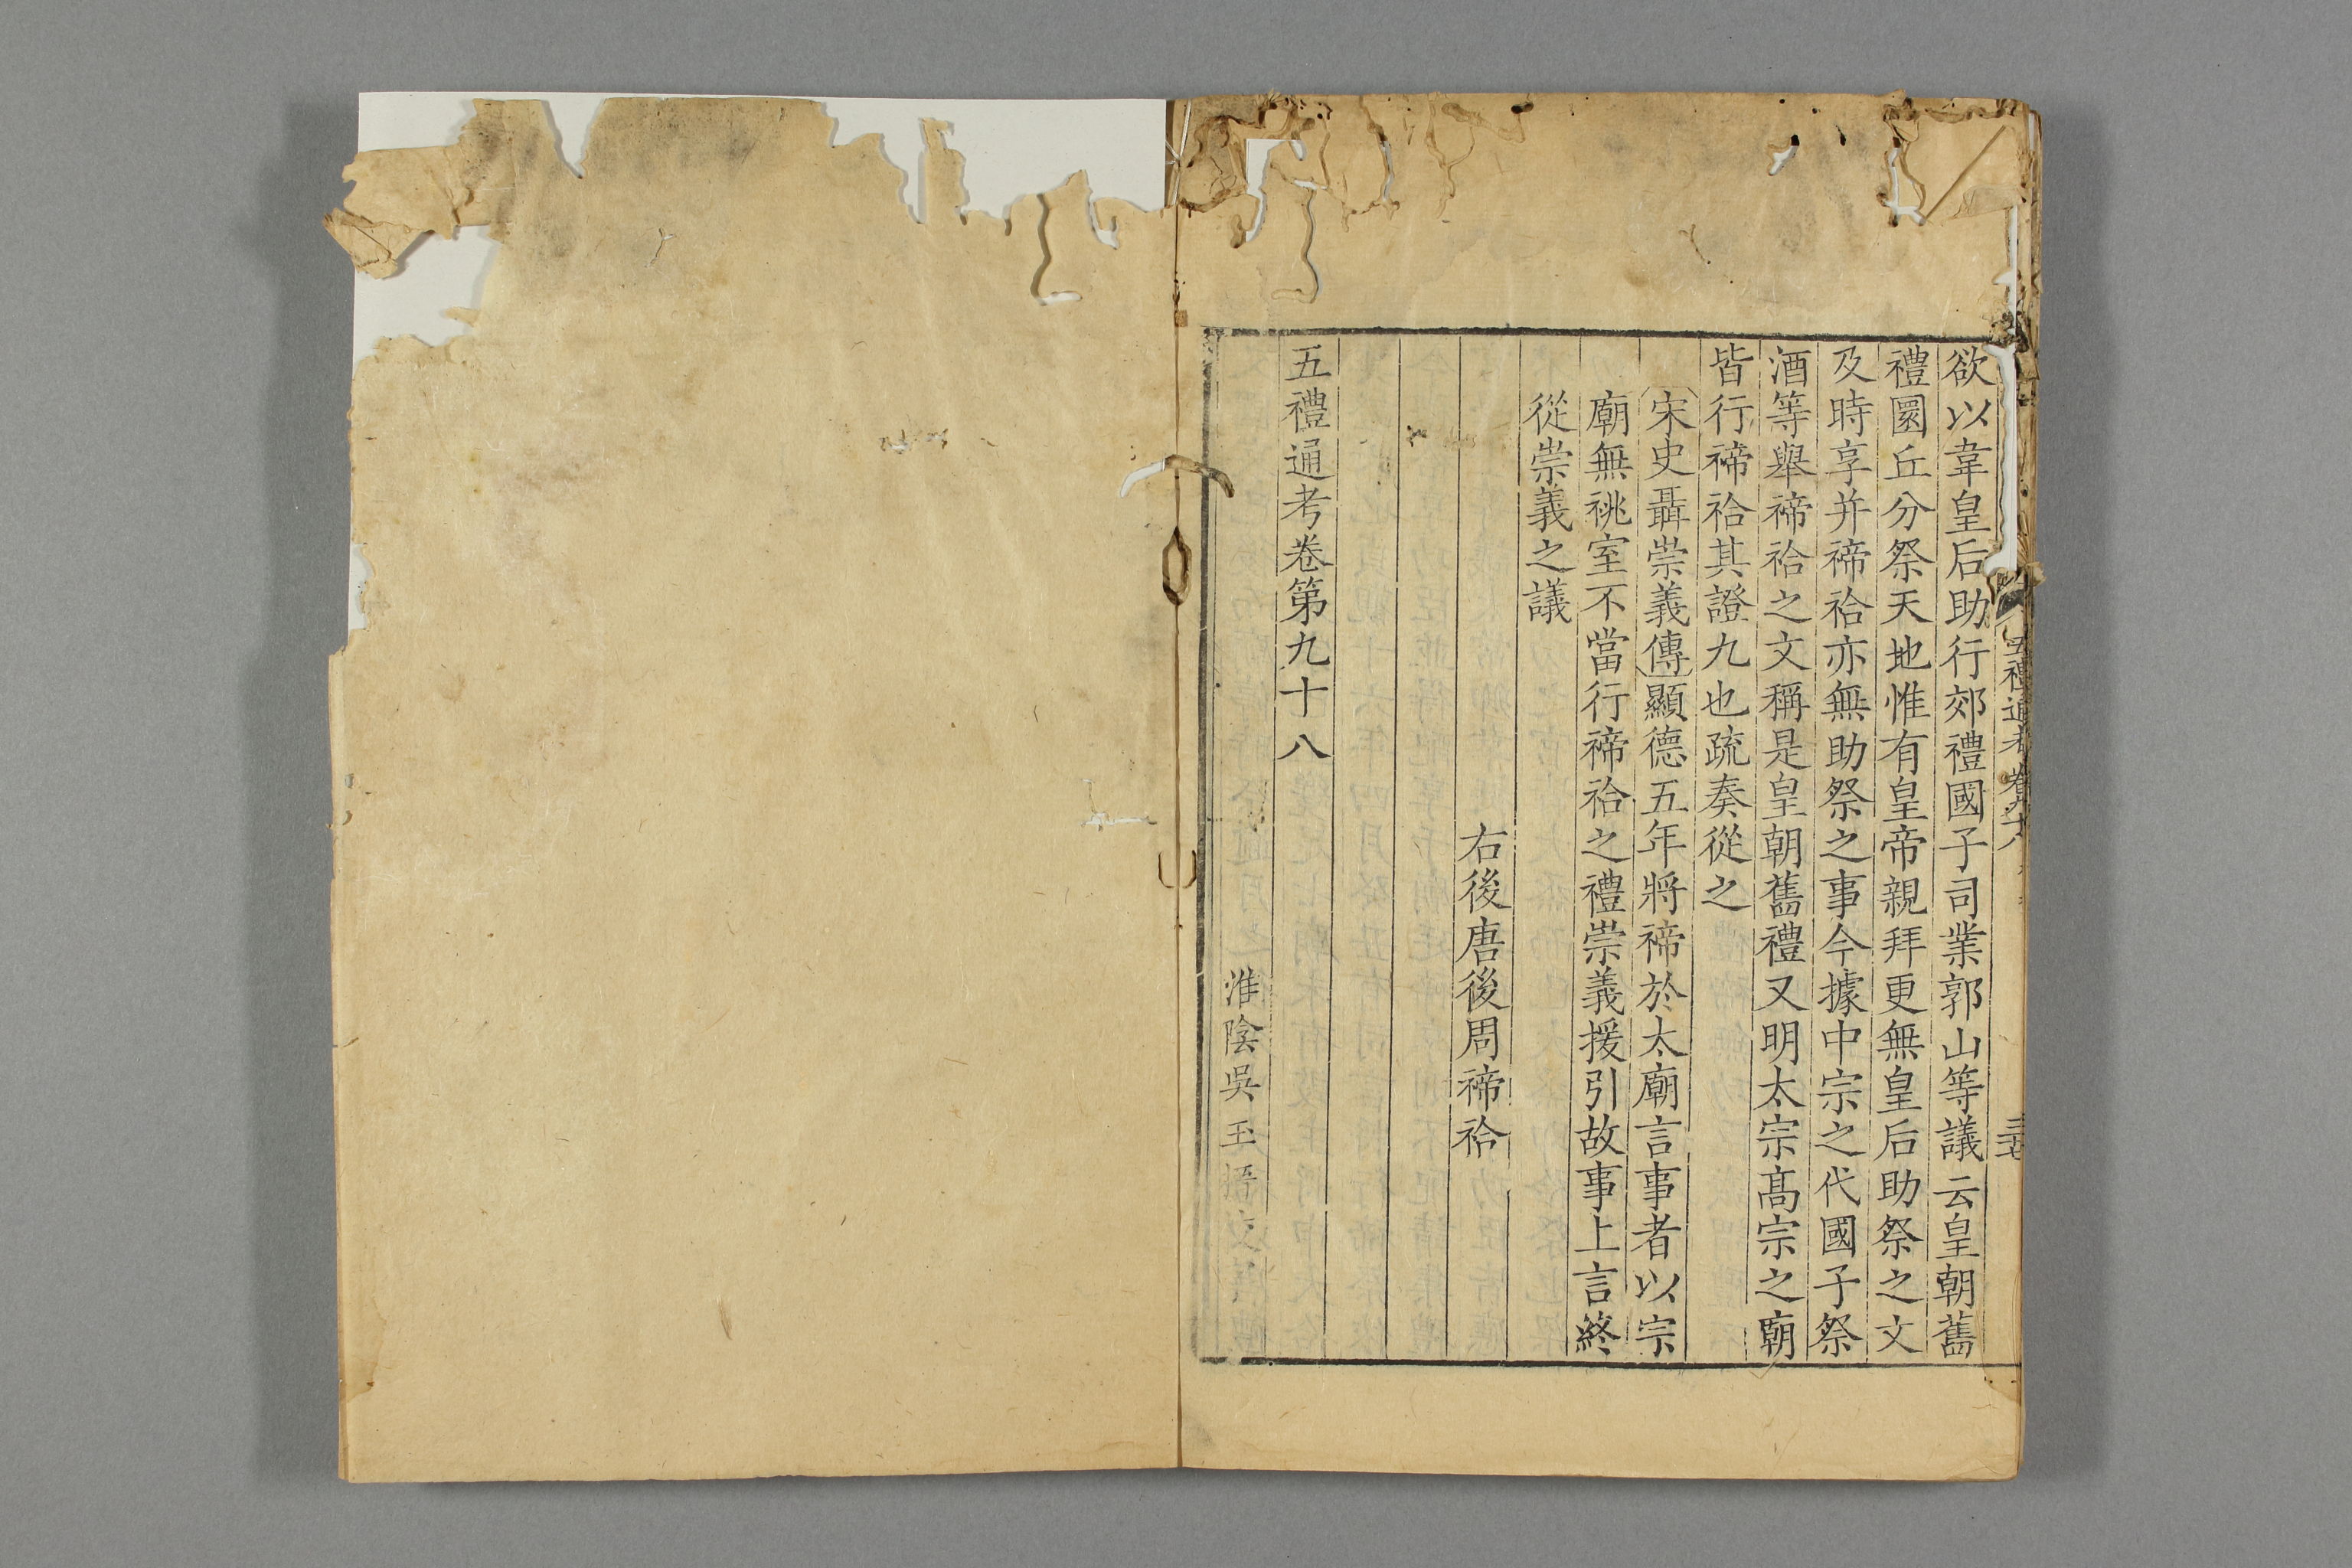 五禮通考 卷九十八
三七
欲以韋皇后助行郊禮國子司業郭山等議云皇朝舊
禮圜丘分祭天地惟有皇帝親拜更無皇后助祭之文
及時享并禘祫亦無助祭之事今據中宗之代國子祭
酒等舉禘祫之文稱是皇朝舊禮又明太宗髙宗之廟
皆行禘祫其證九也疏奏從之
宋史聶崇義傳顯德五年將禘於太廟言事者以宗
廟無祧室不當行禘祫之禮崇義援引故事上言終
從崇義之議
右後唐後周禘祫
五禮通考卷第九十八
淮陰吳玉搢校字